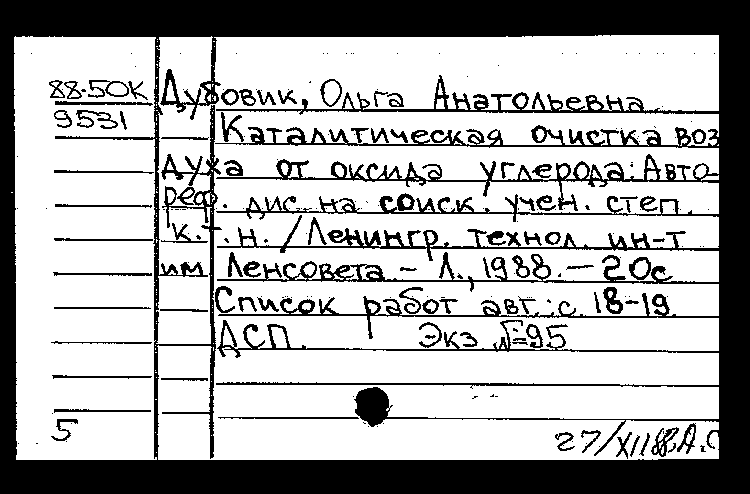 88-50К Дубовик, Ольга Анатольевна
9531 Каталитическая очистка воз
духа от оксида углерода: Авто-
реф. дис. на соиск. учен. степ.
к.т.н. / Ленингр. технол. ин-т
им Ленсовета - Л., 1988. - 20с
Список работ авт.: с. 18-19.
ДСП. Экз №95
5 27/XII 88. А.С